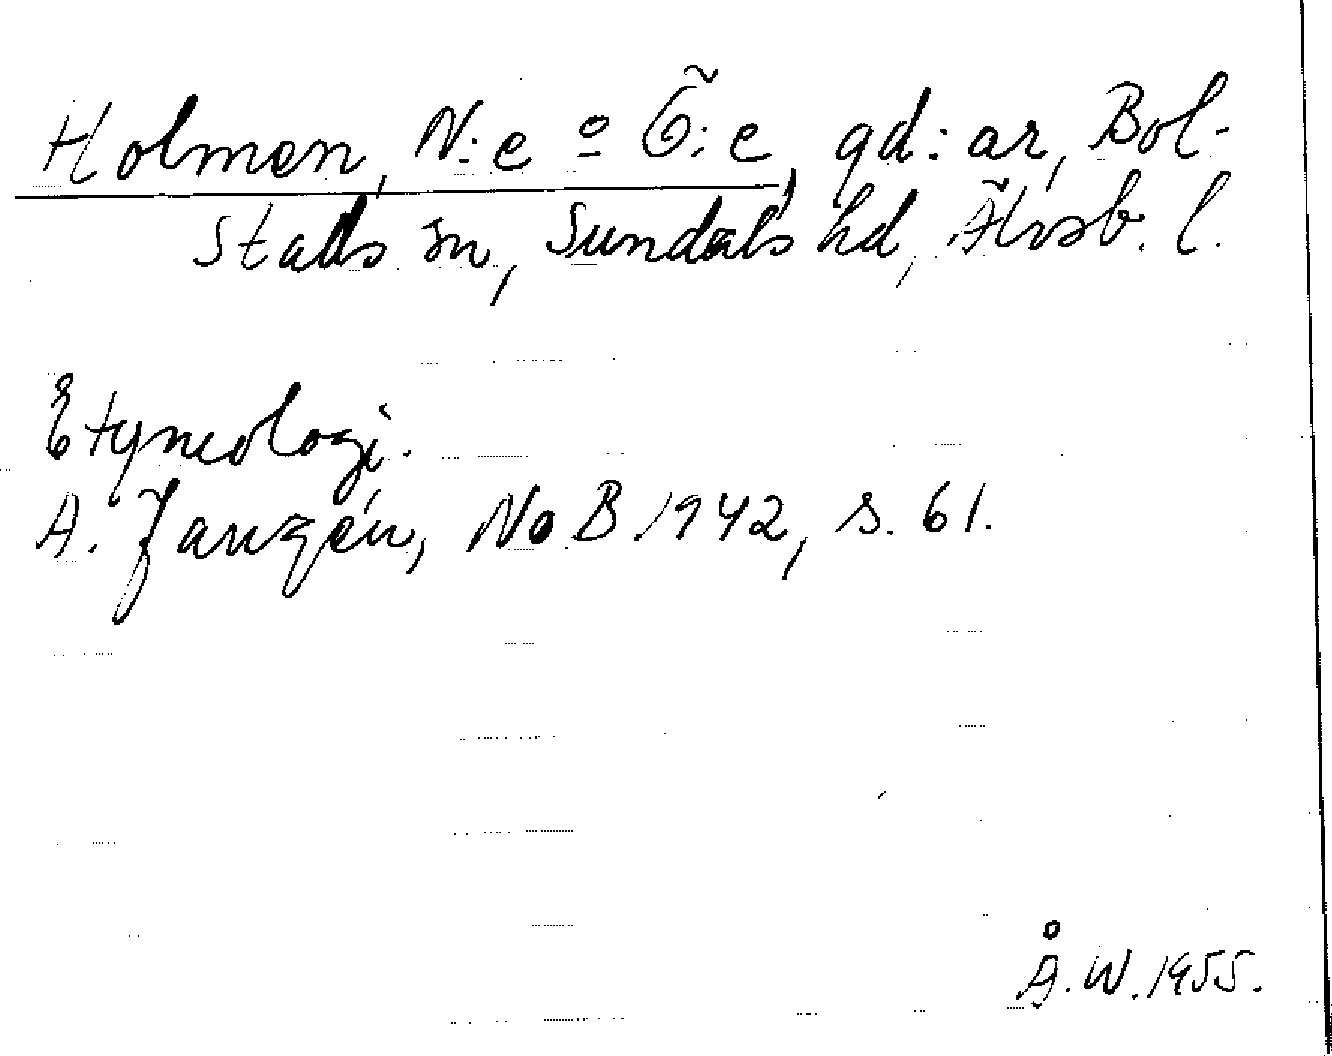 Holmen, N:e o Ö:e, gd:ar, Bol-
stads sn, Sundals hd, Älvsb. l.
Etymologi.
A. Janzén, NoB 1942, s. 61.
Å.W. 1955.